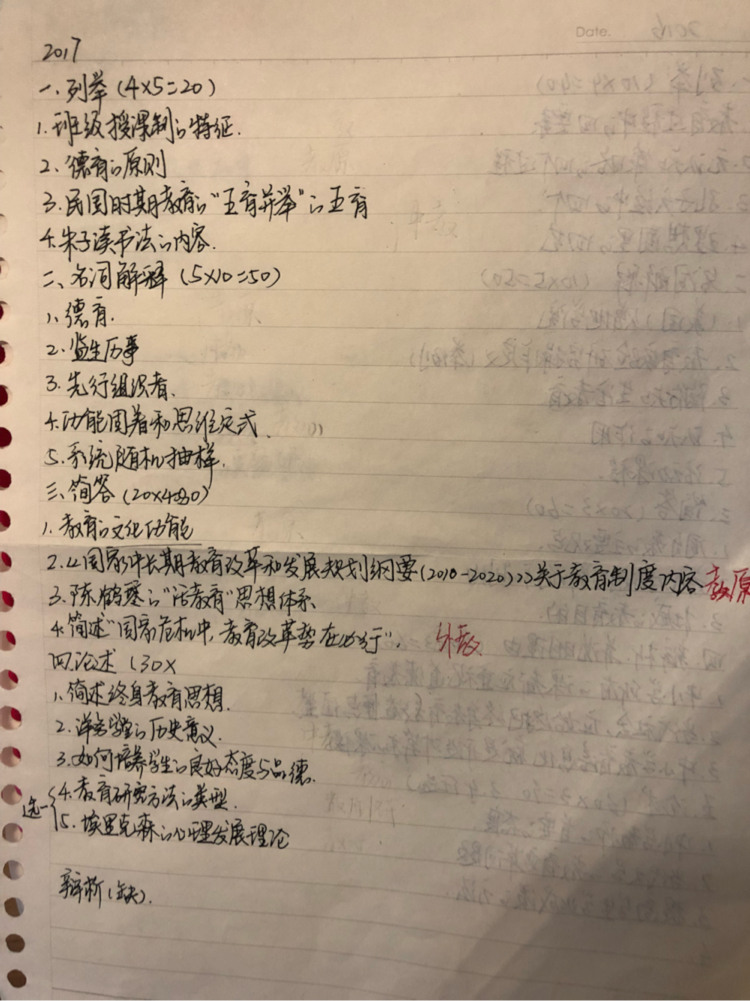 Date.
2017
一、列举(4×5=20)
1. 班级授课制的特征.
2. 德育的原则
3. 民国时期教育的"五育并举"的五育
4. 朱子读书法的内容.
二、名词解释(5×10=50)
1. 德育.
2. 监生历事
3. 先行组织者.
4. 功能固着和思维定式.
5. 系统随机抽样.
三、简答(20×4=80)
1. 教育的文化功能
2. 《国家中长期教育改革和发展规划纲要(2010-2020)》关于教育制度内容 教原
3. 陈鹤琴的"活教育"思想体系
4. 简述"国家危机中,教育改革势在必行". 外教
四.论述(30×
1. 简述终身教育思想.
2. 洋务学堂的历史意义.
3. 如何培养学生的良好态度与品德.
选一 4. 教育研究方法的类型.
5. 埃里克森的心理发展理论
辨析(缺).